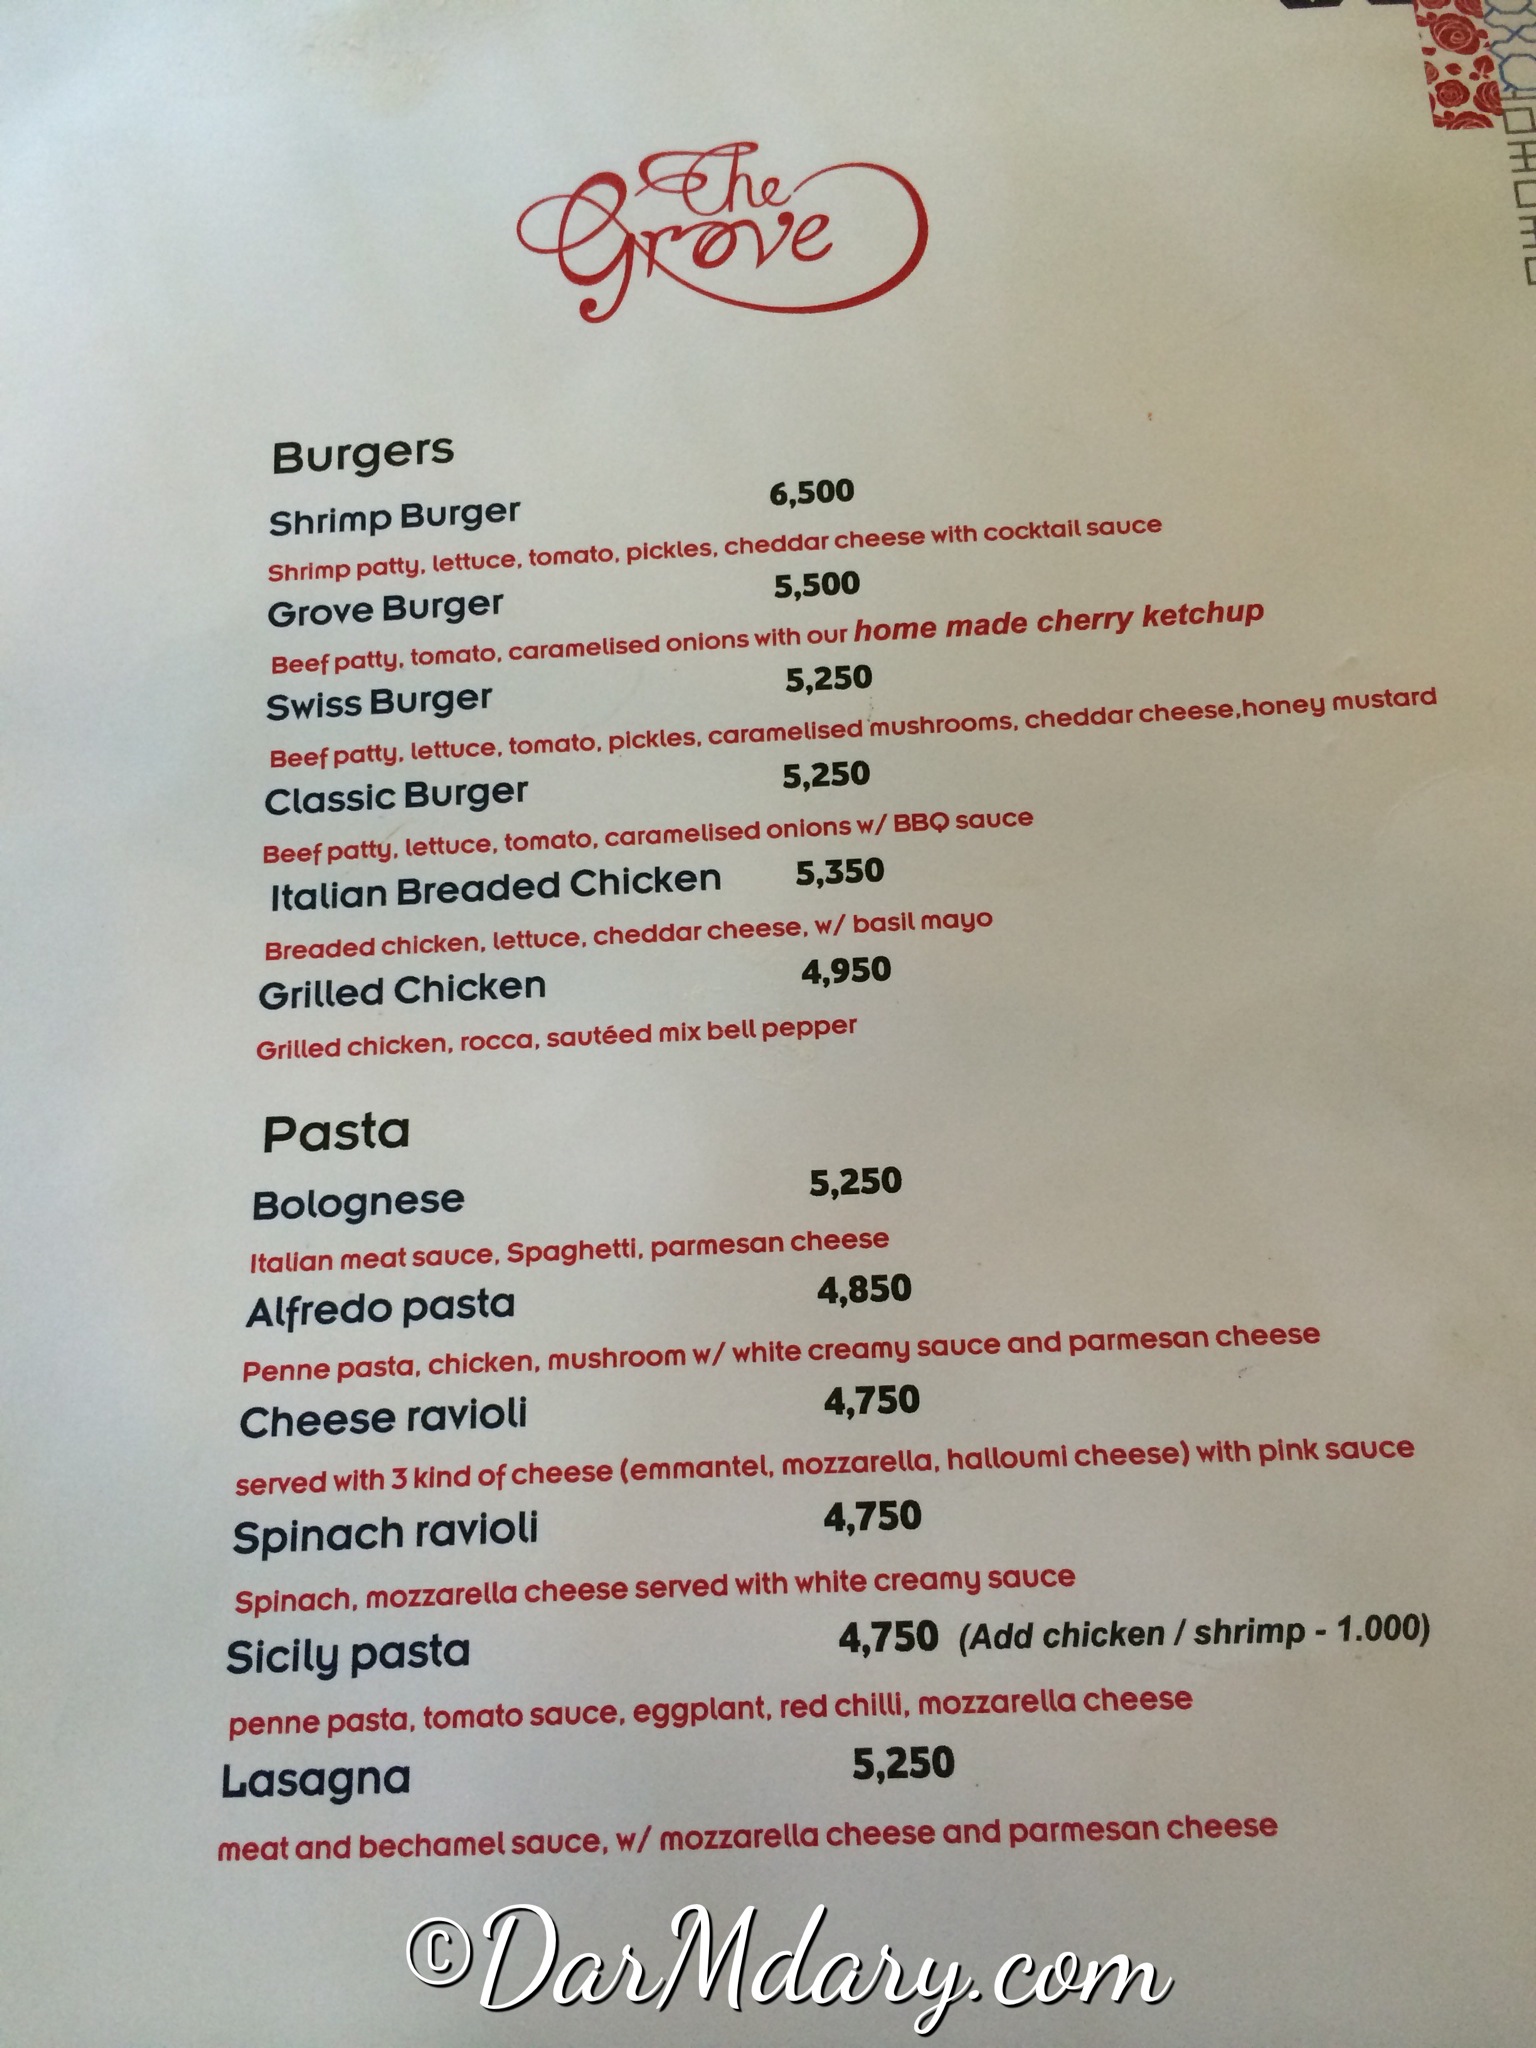 The
Grove
Burgers
Shrimp Burger 6,500
Shrimp patty, lettuce, tomato, pickles, cheddar cheese with cocktail sauce
Grove Burger 5,500
Beef patty, tomato, caramelised onions with our home made cherry ketchup
Swiss Burger 5,250
Beef patty, lettuce, tomato, pickles, caramelised mushrooms, cheddar cheese,honey mustard
Classic Burger 5,250
Beef patty, lettuce, tomato, caramelised onions w/ BBQ sauce
Italian Breaded Chicken 5,350
Breaded chicken, lettuce, cheddar cheese, w/ basil mayo
Grilled Chicken 4,950
Grilled chicken, rocca, sautéed mix bell pepper
Pasta
Bolognese 5,250
Italian meat sauce, Spaghetti, parmesan cheese
Alfredo pasta 4,850
Penne pasta, chicken, mushroom w/ white creamy sauce and parmesan cheese
Cheese ravioli 4,750
served with 3 kind of cheese (emmantel, mozzarella, halloumi cheese) with pink sauce
Spinach ravioli 4,750
Spinach, mozzarella cheese served with white creamy sauce
Sicily pasta 4,750 (Add chicken / shrimp - 1.000)
penne pasta, tomato sauce, eggplant, red chilli, mozzarella cheese
Lasagna 5,250
meat and bechamel sauce, w/ mozzarella cheese and parmesan cheese
©DarMdary.com